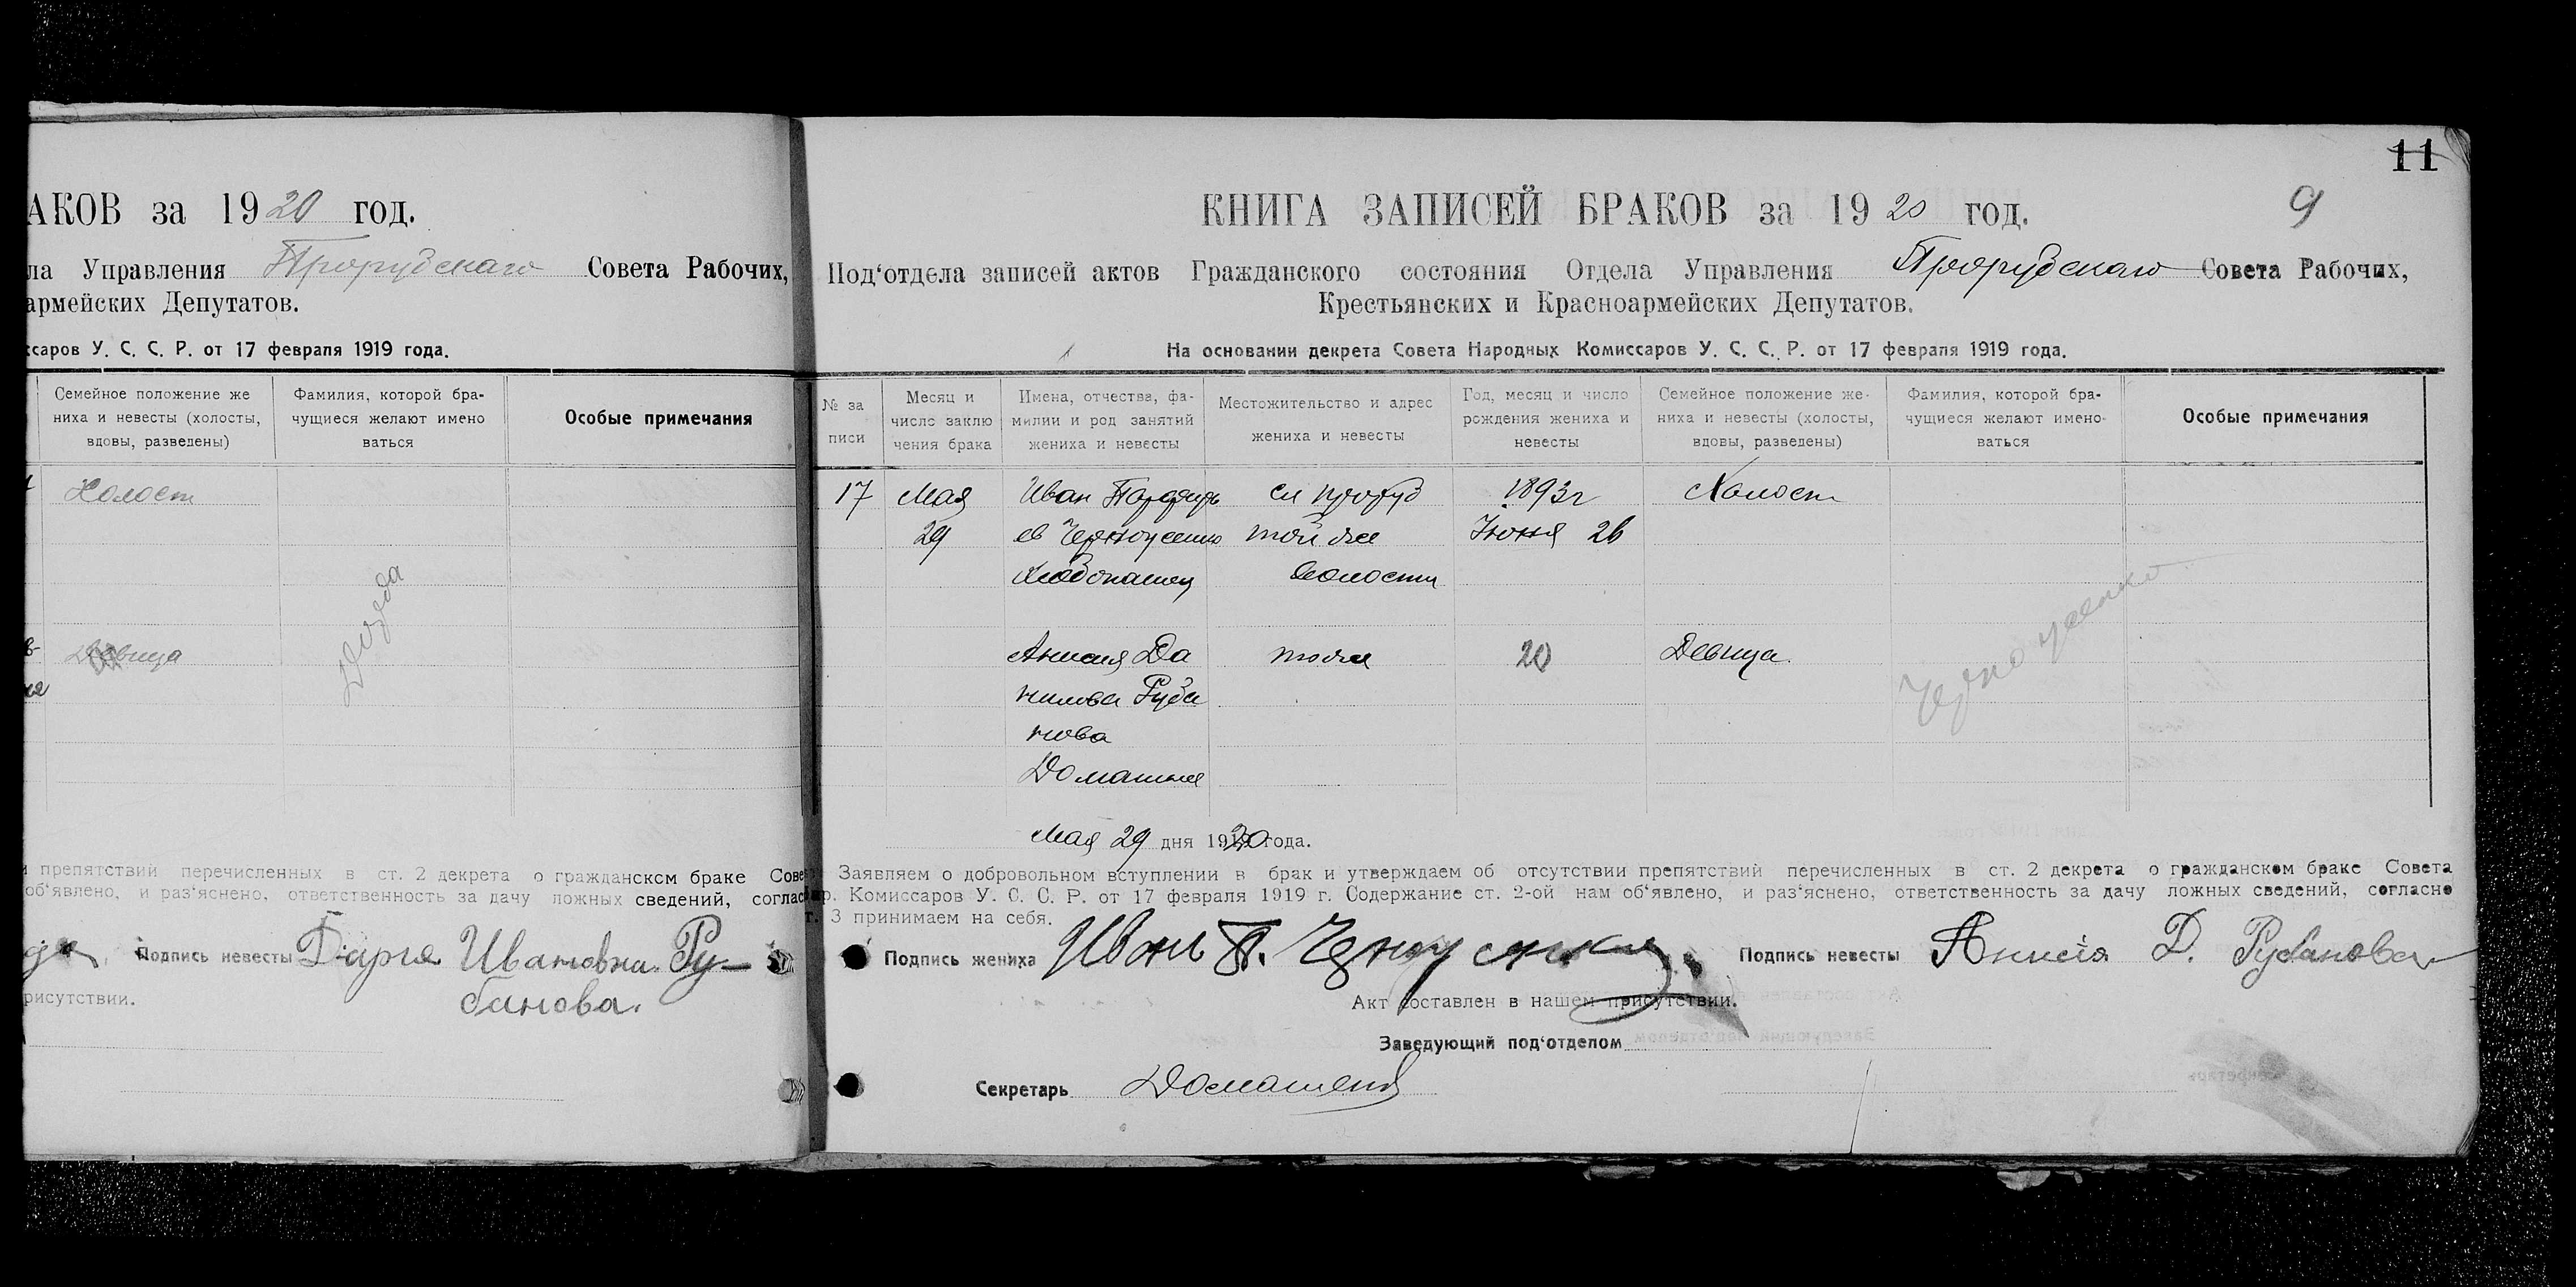 АКОВ за 1920 год.
ла Управления Прорубскаго Совета Рабочих,
армейских Депутатов.
ссаров У. С. С. Р. от 17 февраля 1919 года.
Семейное положение же
ниха и невесты (холосты,
вдовы, разведены)
Фамилия, которой бра-
чущиеся желают имено
ваться
Особые примечания
Холост
Девица
препятствий перечисленных в ст. 2 декрета о гражданском браке Сове
об‘явлено, и раз‘яснено, ответственность за дачу ложных сведений, соглас
Подпись невесты Дарія Ивановна Ру-
банова.
рисутствии.
11
9
КНИГА ЗАПИСЕЙ БРАКОВ за 1920 год.
Под‘отдела записей актов Гражданского состояния Отдела Управления Прорубскаго Совета Рабочих,
Крестьянских и Красноармейских Депутатов.
На основании декрета Совета Народных Комиссаров У. С. С. Р. от 17 февраля 1919 года.
№ за
писи
Месяц и
число заклю
чения брака
Имена, отчества, фа-
милии и род занятий
жениха и невесты
Местожительство и адрес
жениха и невесты
Год, месяц и число
рождения жениха и
невесты
Семейное положение же-
ниха и невесты (холосты,
вдовы, разведены)
Фамилия, которой бра-
чущиеся желают имено-
ваться
Особые примечания
17 Мая Иван Порфирь сл Проруб 1893г Холост
29 ев Черноусенко той же Июня 26
Хлебопашец волости
Анисия Да тоже 20 Девица
нилова Руба
нова
Домашняя
Черноусенко
Мая 29 дня 1920 года.
Заявляем о добровольном вступлении в брак и утверждаем об отсутствии препятствий перечисленных в ст. 2 декрета о гражданском браке Совета
ар. Комиссаров У. С. С. Р. от 17 февраля 1919 г. Содержание ст. 2-ой нам об‘явлено, и раз‘яснено, ответственность за дачу ложных сведений, согласно
т. 3 принимаем на себя.
Подпись жениха Иван П. Черноусенко Подпись невесты Анисія Д. Рубанова
Акт составлен в нашем присутствии.
Заведующий под‘отделом
Секретарь